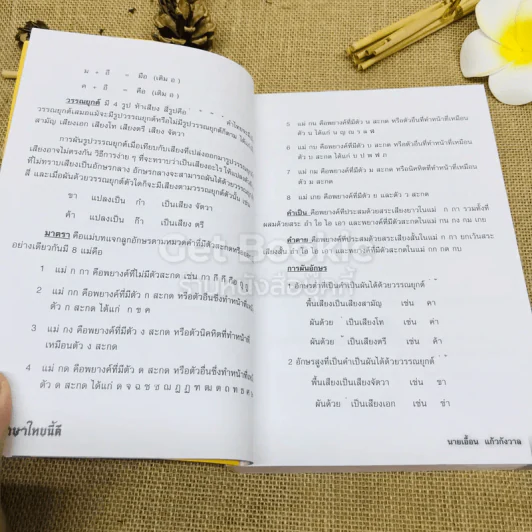 ม + อี = มือ (เติม อ)
ค + อี = คือ (เติม อ)
วรรณยุกต์ มี 4 รูป ห้าเสียง สี่รูปคือ
วรรณยุกต์เสมอแม้จะมีรูปวรรณยุกต์หรือไม่มีรูปวรรณยุกต์ก็ตาม
สามัญ เสียงเอก เสียงโท เสียงตรี เสียง จัตวา
การผันรูปวรรณยุกต์เมื่อเทียบกับเสียงที่เปล่งออกมารูปวรรณยุกต์
เสียงอาจไม่ตรงกัน วิธีการง่าย ๆ ที่จะทราบว่าเป็นเสียงอะไร
ที่ไม่ทราบเสียงเป็นอักษรกลาง อักษรกลางจะสามารถผันได้ด้วยวรรณยุกต์
สี่ และเมื่อผันด้วยวรรณยุกต์ตัวใดก็จะมีเสียงตามวรรณยุกต์ตัวนั้น เช่น
ขา แปลงเป็น ก๋า เป็นเสียง จัตวา
ค้า แปลงเป็น ก๊า เป็นเสียง ตรี
มาตรา คือแม่บทแจกลูกอักษรตามหมวดคำที่มีตัวสะกด
อย่างเดียวกันมี 8 แม่คือ
1 แม่ ก กา คือพยางค์ที่ไม่มีตัวสะกด เช่น กา กิ กี
2 แม่ กก คือพยางค์ที่มีตัว ก สะกด หรือตัวอื่นซึ่งทำหน้าที่
ตัว ก สะกด ได้แก่ ก ข ค
3 แม่ กง คือพยางค์ที่มีตัว ง สะกด หรือตัวนิคหิตที่ทำหน้าที่
เหมือนตัว ง สะกด
4 แม่ กด คือพยางค์ที่มีตัว ด สะกด หรือตัวอื่นซึ่งทำหน้าที่
ตัว ด สะกด ได้แก่ ด จ ฉ ช ซ ฌ ฎ ฏ ฑ ฒ ต ถ ท ธ
ภาษาไทยนี้ดี
5 แม่ กน คือพยางค์ที่มีตัว น สะกด หรือตัวอื่นที่ทำหน้าที่เหมือน
ตัว น ได้แก่ น ญ ณ ร ล ฬ
6 แม่ กบ คือพยางค์ที่มีตัว บ สะกด หรือตัวอื่นที่ทำหน้าที่เหมือน
ตัว บ สะกด ได้แก่ บ ป พ ฟ ภ
7 แม่ กม คือพยางค์ที่มีตัว ม สะกด หรือนิคหิตที่ทำหน้าที่เหมือน
ตัว ม สะกด
8 แม่ เกย คือพยางค์ที่มีตัว ย และตัว ว สะกด
คำเป็น คือพยางค์ที่ประสมด้วยสระเสียงยาวในแม่ ก กา รวมทั้งที่
ผสมด้วยสระ อำ ไอ ใอ เอา และพยางค์ที่มีตัวสะกดในแม่ กน กง กม เกย
คำตาย คือพยางค์ที่ประสมด้วยสระเสียงสั้นในแม่ ก กา ยกเว้นสระ
เสียงสั้น อำ ไอ ใอ เอา และพยางค์ที่มีตัวสะกดในแม่ กก กด กบ
การผันอักษร
1 อักษรต่ำที่เป็นคำเป็นผันได้ด้วยวรรณยุกต์ ่ ้
พื้นเสียงเป็นเสียงสามัญ เช่น คา
ผันด้วย ่ เป็นเสียงโท เช่น ค่า
ผันด้วย ้ เป็นเสียงตรี เช่น ค้า
2 อักษรสูงที่เป็นคำเป็นผันได้ด้วยวรรณยุกต์ ่ ้
พื้นเสียงเป็นเสียงจัตวา เช่น ขา
ผันด้วย ่ เป็นเสียงเอก เช่น ข่า
นายเอื้อน แก้วกังวาล
Get Books
ร้านหนังสืออยู่นี้